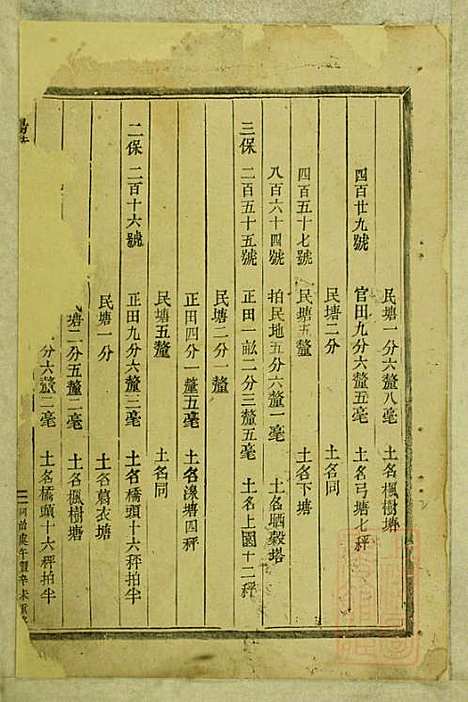 民塘一分六釐八毫 土名楓樹塘
四百廿九號 官田九分六釐五毫 土名弓塘七秤
民塘二分 土名同
四百五十七號 民塘五釐 土名下塘
八百六十四號 拍民地五分六釐一毫 土名晒穀塔
三保 二百五十五號 正田一畝二分三釐五毫 土名上園十二秤
民塘二分一釐
正田四分一釐五毫 土名湶塘四秤
民塘五釐 土名同
二保 二百十六號 正田九分六釐三毫 土名橋頭十六秤拍半
民塘一分 土名蓑衣塘
塘二分五釐二毫 土名楓樹塘
分六釐二毫 土名橋頭十六秤拍半